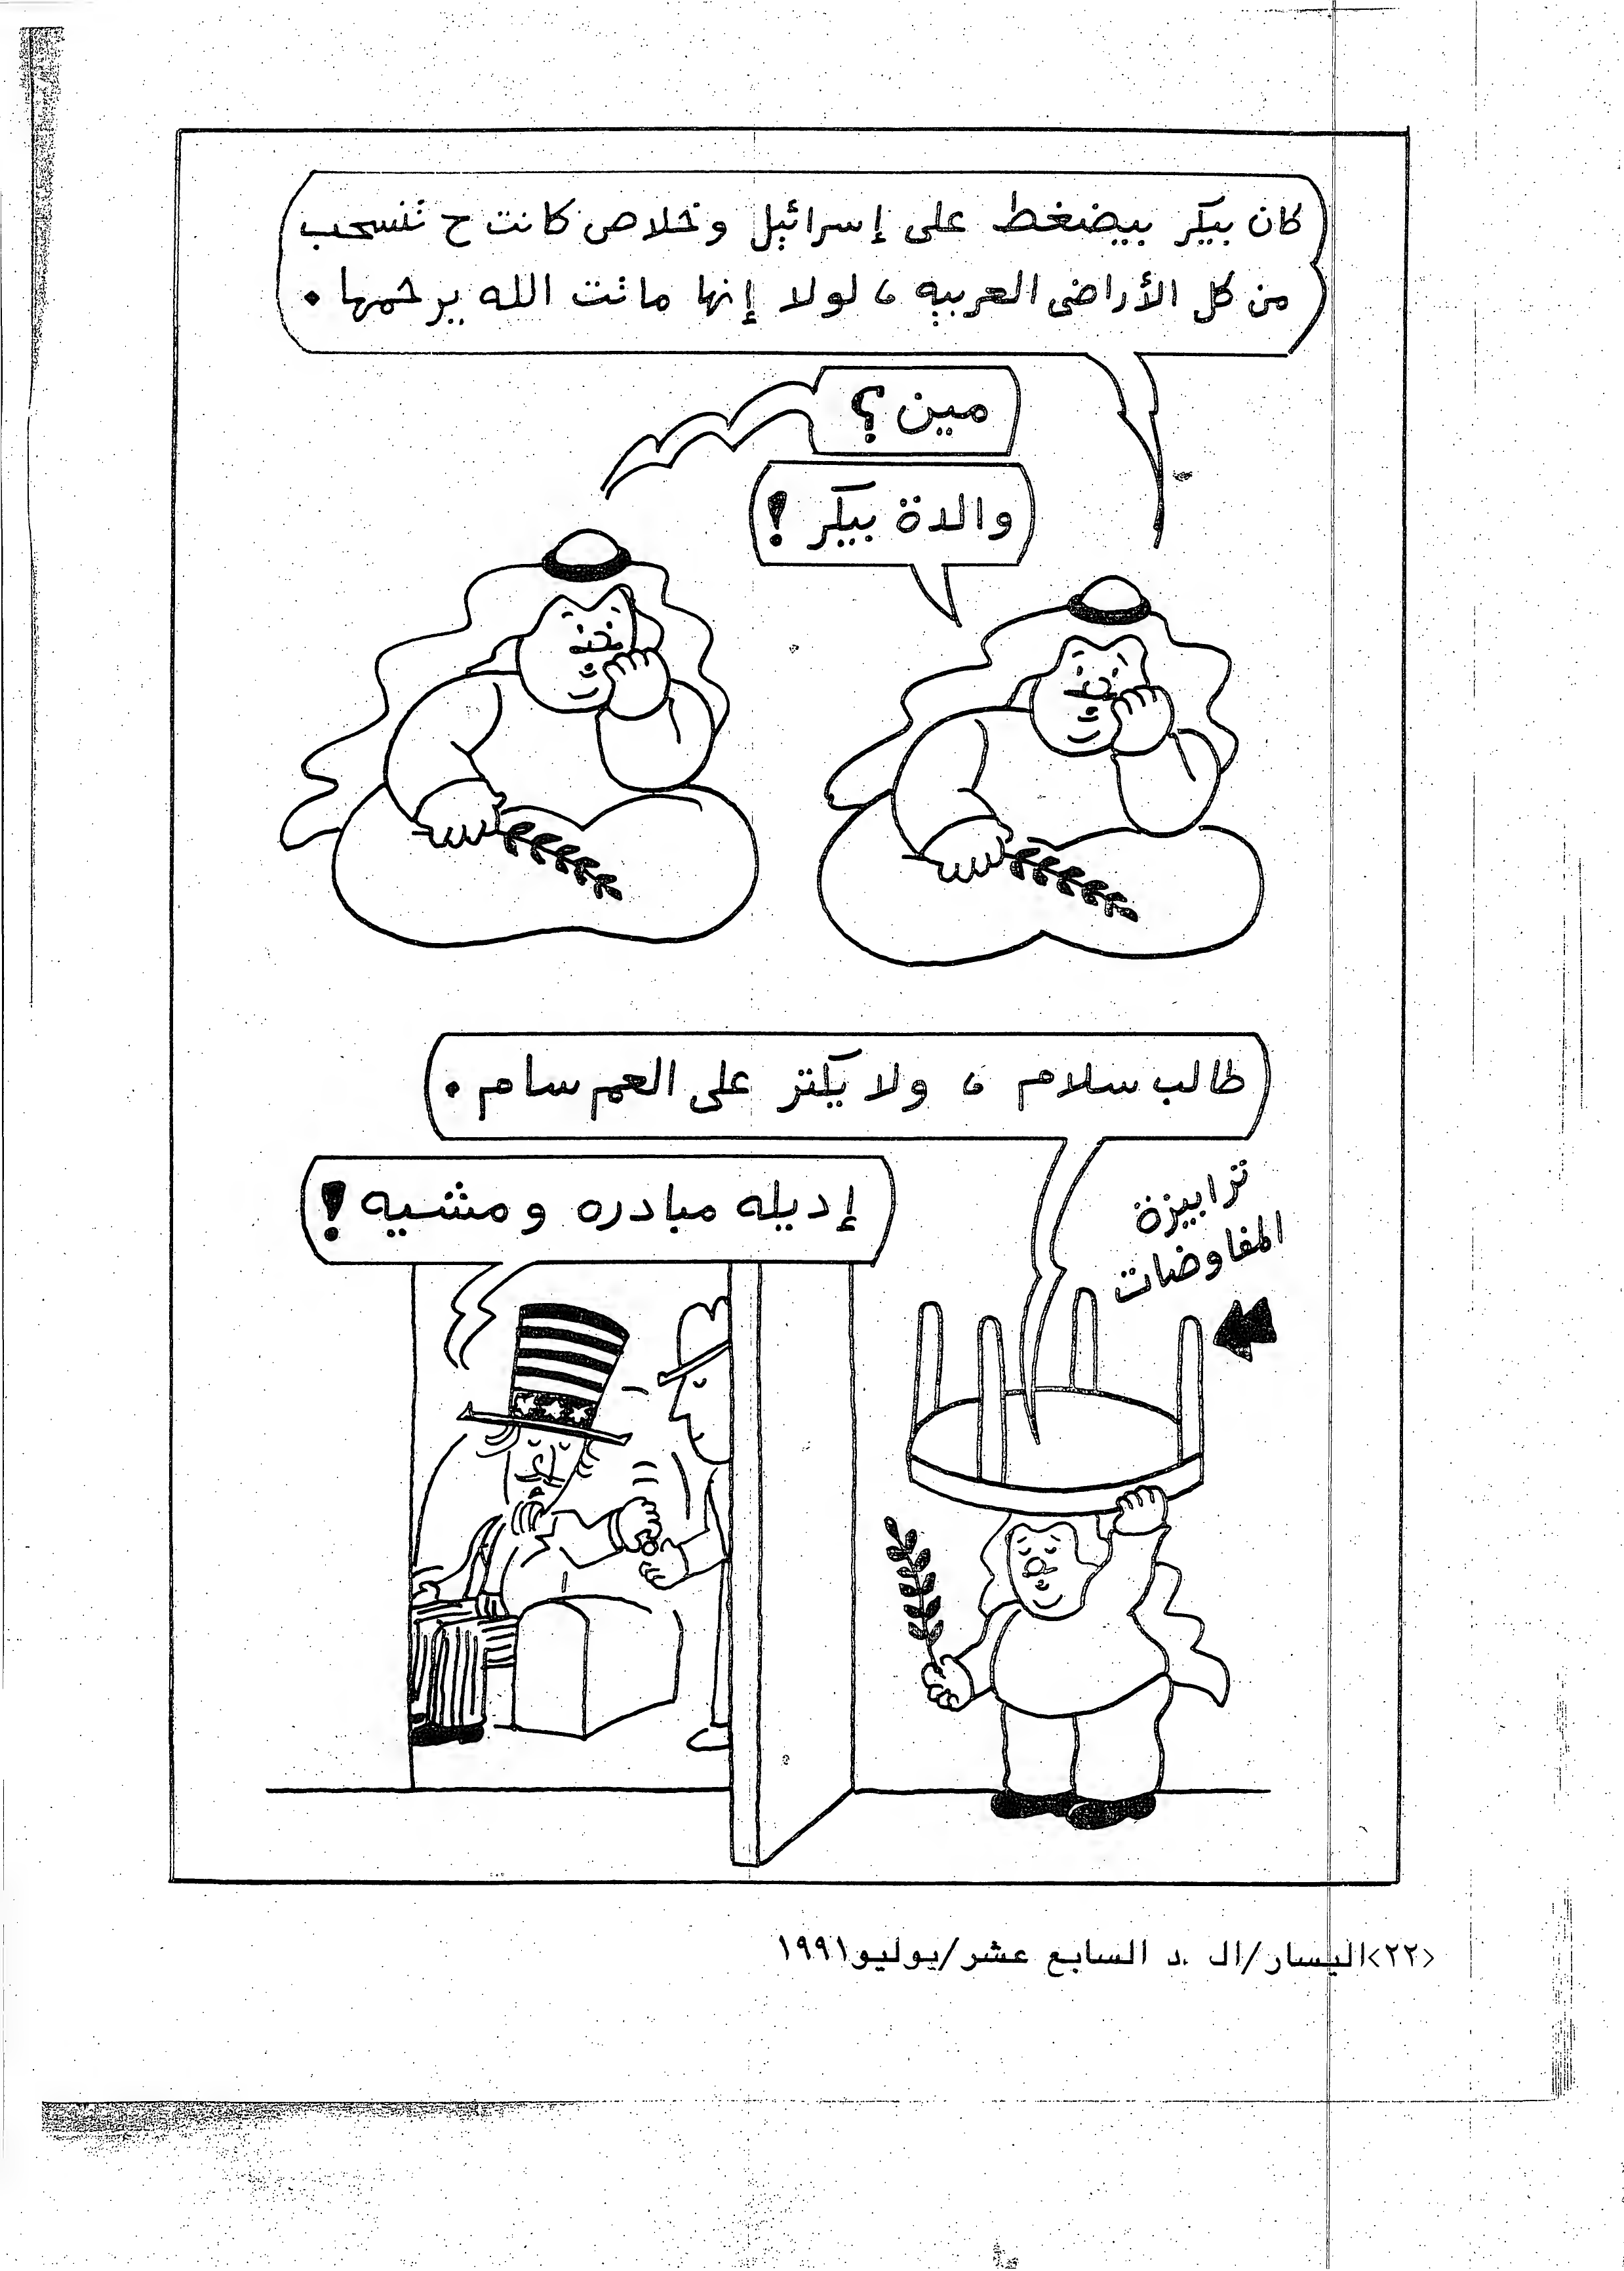 كان بيكر بيضغط على إسرائيل وخلاص كانت ح تنسحب
من كل الأراضى العربيه، لولا إنها ماتت الله يرحمها.
مين؟
والدة بيكر!
طالب سلام، ولا يكتر على العم سام.
إديله مبادره ومشيه!
ترابيزة
المفاوضات
<٢٢>اليسار/ال .د السابع عشر/يوليو١٩٩١